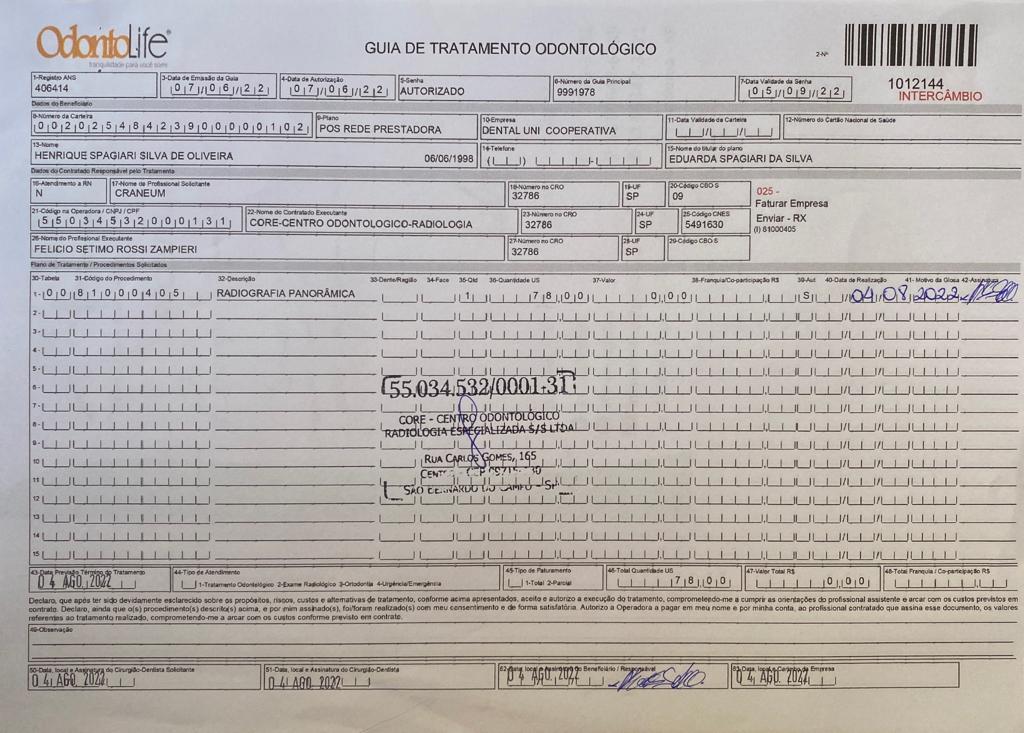 OdontoLife
tranquilidade para você sorrir
GUIA DE TRATAMENTO ODONTOLÓGICO
2-Nº
1012144
INTERCÂMBIO
1-Registro ANS
406414
3-Data de Emissão da Guia
07/06/22
4-Data de Autorização
07/06/22
5-Senha
AUTORIZADO
6-Número da Guia Principal
9991978
7-Data Validade da Senha
05/09/22
Dados do Beneficiário
8-Número da Carteira
00202548423900000102
9-Plano
POS REDE PRESTADORA
10-Empresa
DENTAL UNI COOPERATIVA
11-Data Validade da Carteira
12-Número do Cartão Nacional de Saúde
13-Nome
HENRIQUE SPAGIARI SILVA DE OLIVEIRA 06/06/1998
14-Telefone
15-Nome do titular do plano
EDUARDA SPAGIARI DA SILVA
Dados do Contratado Responsável pelo Tratamento
16-Atendimento a RN
N
17-Nome do Profissional Solicitante
CRANEUM
18-Número no CRO
32786
19-UF
SP
20-Código CBO S
09
025 -
Faturar Empresa
Enviar - RX
(I) 81000405
21-Código na Operadora / CNPJ / CPF
55034532000131
22-Nome do Contratado Executante
CORE-CENTRO ODONTOLOGICO-RADIOLOGIA
23-Número no CRO
32786
24-UF
SP
25-Código CNES
5491630
26-Nome do Profissional Executante
FELICIO SETIMO ROSSI ZAMPIERI
27-Número no CRO
32786
28-UF
SP
29-Código CBO S
Plano de Tratamento / Procedimentos Solicitados
30-Tabela 31-Código do Procedimento 32-Descrição 33-Dente/Região 34-Face 35-Qtd 36-Quantidade US 37-Valor 38-Franquia/Co-participação R$ 39-Aut 40-Data de Realização 41- Motivo da Glosa 42-Assinatura
1- 00 81000405 RADIOGRAFIA PANORÂMICA 1 78,00 0,00 S 04/08/2022
2-
3-
4-
5-
6-
7-
8-
9-
10
11
12
13
14
15
55.034.532/0001-31
CORE - CENTRO ODONTOLÓGICO
RADIOLOGIA ESPECIALIZADA S/S LTDA
RUA CARLOS GOMES, 165
SÃO BERNARDO DO CAMPO - SP
43-Data Previsão Término do Tratamento
04 AGO. 2022
44-Tipo de Atendimento
1-Tratamento Odontológico 2-Exame Radiológico 3-Ortodontia 4-Urgência/Emergência
45-Tipo de Faturamento
1-Total 2-Parcial
46-Total Quantidade US
78,00
47-Valor Total R$
0,00
48-Total Franquia / Co-participação R$
Declaro, que após ter sido devidamente esclarecido sobre os propósitos, riscos, custos e alternativas de tratamento, conforme acima apresentados, aceito e autorizo a execução do tratamento, comprometendo-me a cumprir as orientações do profissional assistente e arcar com os custos previstos em
contrato. Declaro, ainda que o(s) procedimento(s) descrito(s) acima, e por mim assinado(s), foi/foram realizado(s) com meu consentimento e de forma satisfatória. Autorizo a Operadora a pagar em meu nome e por minha conta, ao profissional contratado que assina esse documento, os valores
referentes ao tratamento realizado, comprometendo-me a arcar com os custos conforme previsto em contrato.
49-Observação
50-Data, local e Assinatura do Cirurgião-Dentista Solicitante
04 AGO. 2022
51-Data, local e Assinatura do Cirurgião-Dentista
04 AGO. 2022
52-Data, local e Assinatura do Beneficiário / Responsável
04 AGO. 2022
53-Data, local e Carimbo da Empresa
04 AGO. 2022